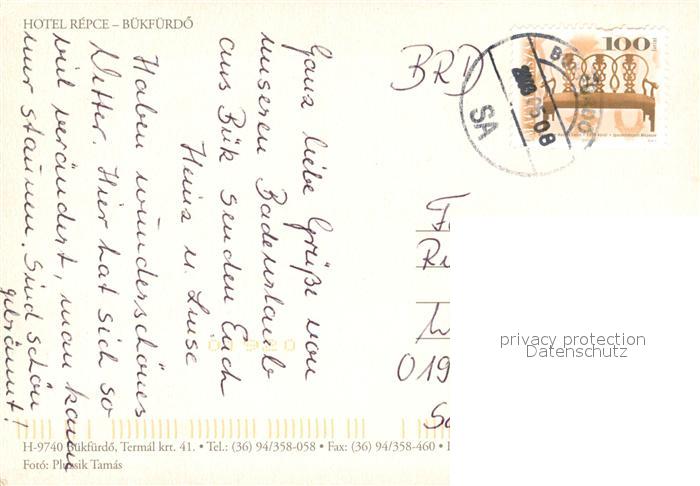 HOTEL RÉPCE – BÜKFÜRDŐ
Ganz liebe Grüße von
unserem Badeurlaub
aus Bük senden Euch
Heinz u. Luise
Haben wunderschönes
Wetter. Hier hat sich so
viel verändert, man kann
nur staunen. Sind schön
gebräunt!
BRD
100
SA
08
019
01920
privacy protection
Datenschutz
H-9740 Bükfürdő, Termál krt. 41. • Tel.: (36) 94/358-058 • Fax: (36) 94/358-460 •
Fotó: Plussik Tamás